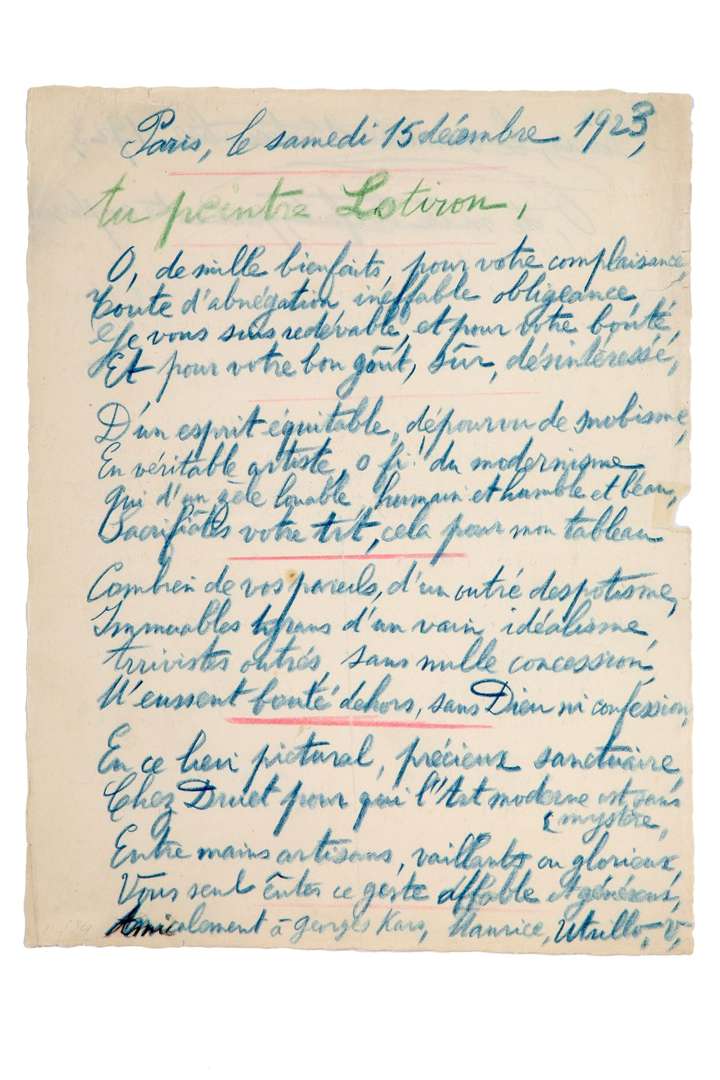 Paris, le samedi 15 décembre 1923,
Au peintre Lotiron,
O, de mille bienfaits, pour votre complaisance,
Toute d'abnégation ineffable obligeance
Je vous suis redevable, et pour votre bonté,
Et pour votre bon goût, sûr, désintéressé,
D'un esprit équitable, dépourvu de snobisme,
En véritable artiste, o fi! du modernisme
Qui d'un zèle louable, humain et humble et beau,
Sacrifiâtes votre Art, cela pour mon tableau
Combien de vos pareils, d'un outré despotisme,
Immuables tyrans d'un vain idéalisme,
Arrivistes outrés, sans nulle concession,
M'eussent bouté dehors, sans Dieu ni confession,
En ce lieu pictural, précieux sanctuaire,
Chez Druet pour qui l'Art moderne est sans
(mystère,
Entre maints artisans, vaillants ou glorieux,
Vous seul eûtes ce geste affable et généreux,
Amicalement à Georges Kars, Maurice, Utrillo, V,